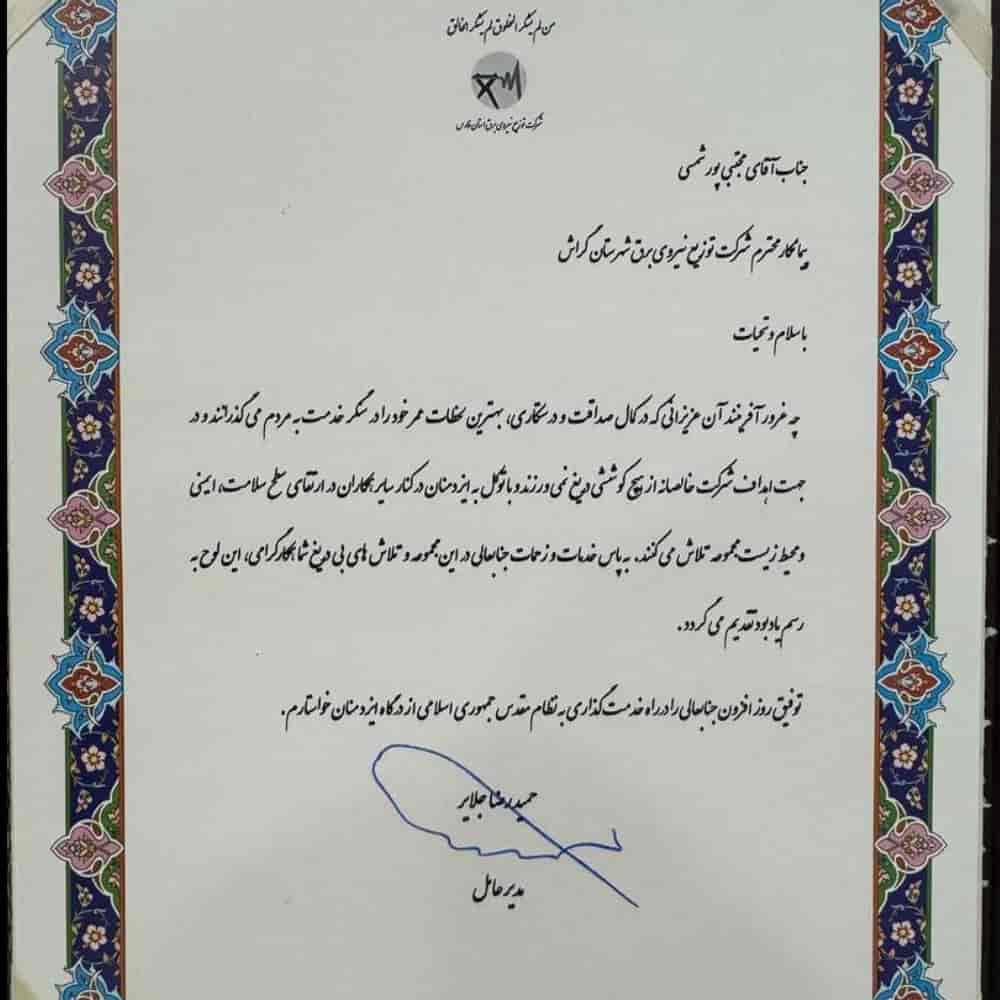 من لم یشکر المخلوق لم یشکر الخالق
شرکت توزیع نیروی برق استان فارس
جناب آقای مجتبی پور شمسی
پیمانکار محترم شرکت توزیع نیروی برق شهرستان گراش
با سلام و تحیات
چه غرور آفرینند آن عزیزانی که در کمال صداقت و درستکاری، بهترین لحظات عمر خود را در سنگر خدمت به مردم می گذرانند و در
جهت اهداف شرکت خالصانه از هیچ کوششی دریغ نمی ورزند و با توکل به ایزد منان در کنار سایر همکاران در ارتقای سطح سلامت، ایمنی
و محیط زیست مجموعه تلاش می کنند. به پاس خدمات و زحمات جنابعالی در این مجموعه و تلاش های بی دریغ شما همکار گرامی، این لوح به
رسم یادبود تقدیم می گردد.
توفیق روز افزون جنابعالی را در راه خدمت گذاری به نظام مقدس جمهوری اسلامی از درگاه ایزد منان خواستارم.
حمید رضا جلایر
مدیر عامل